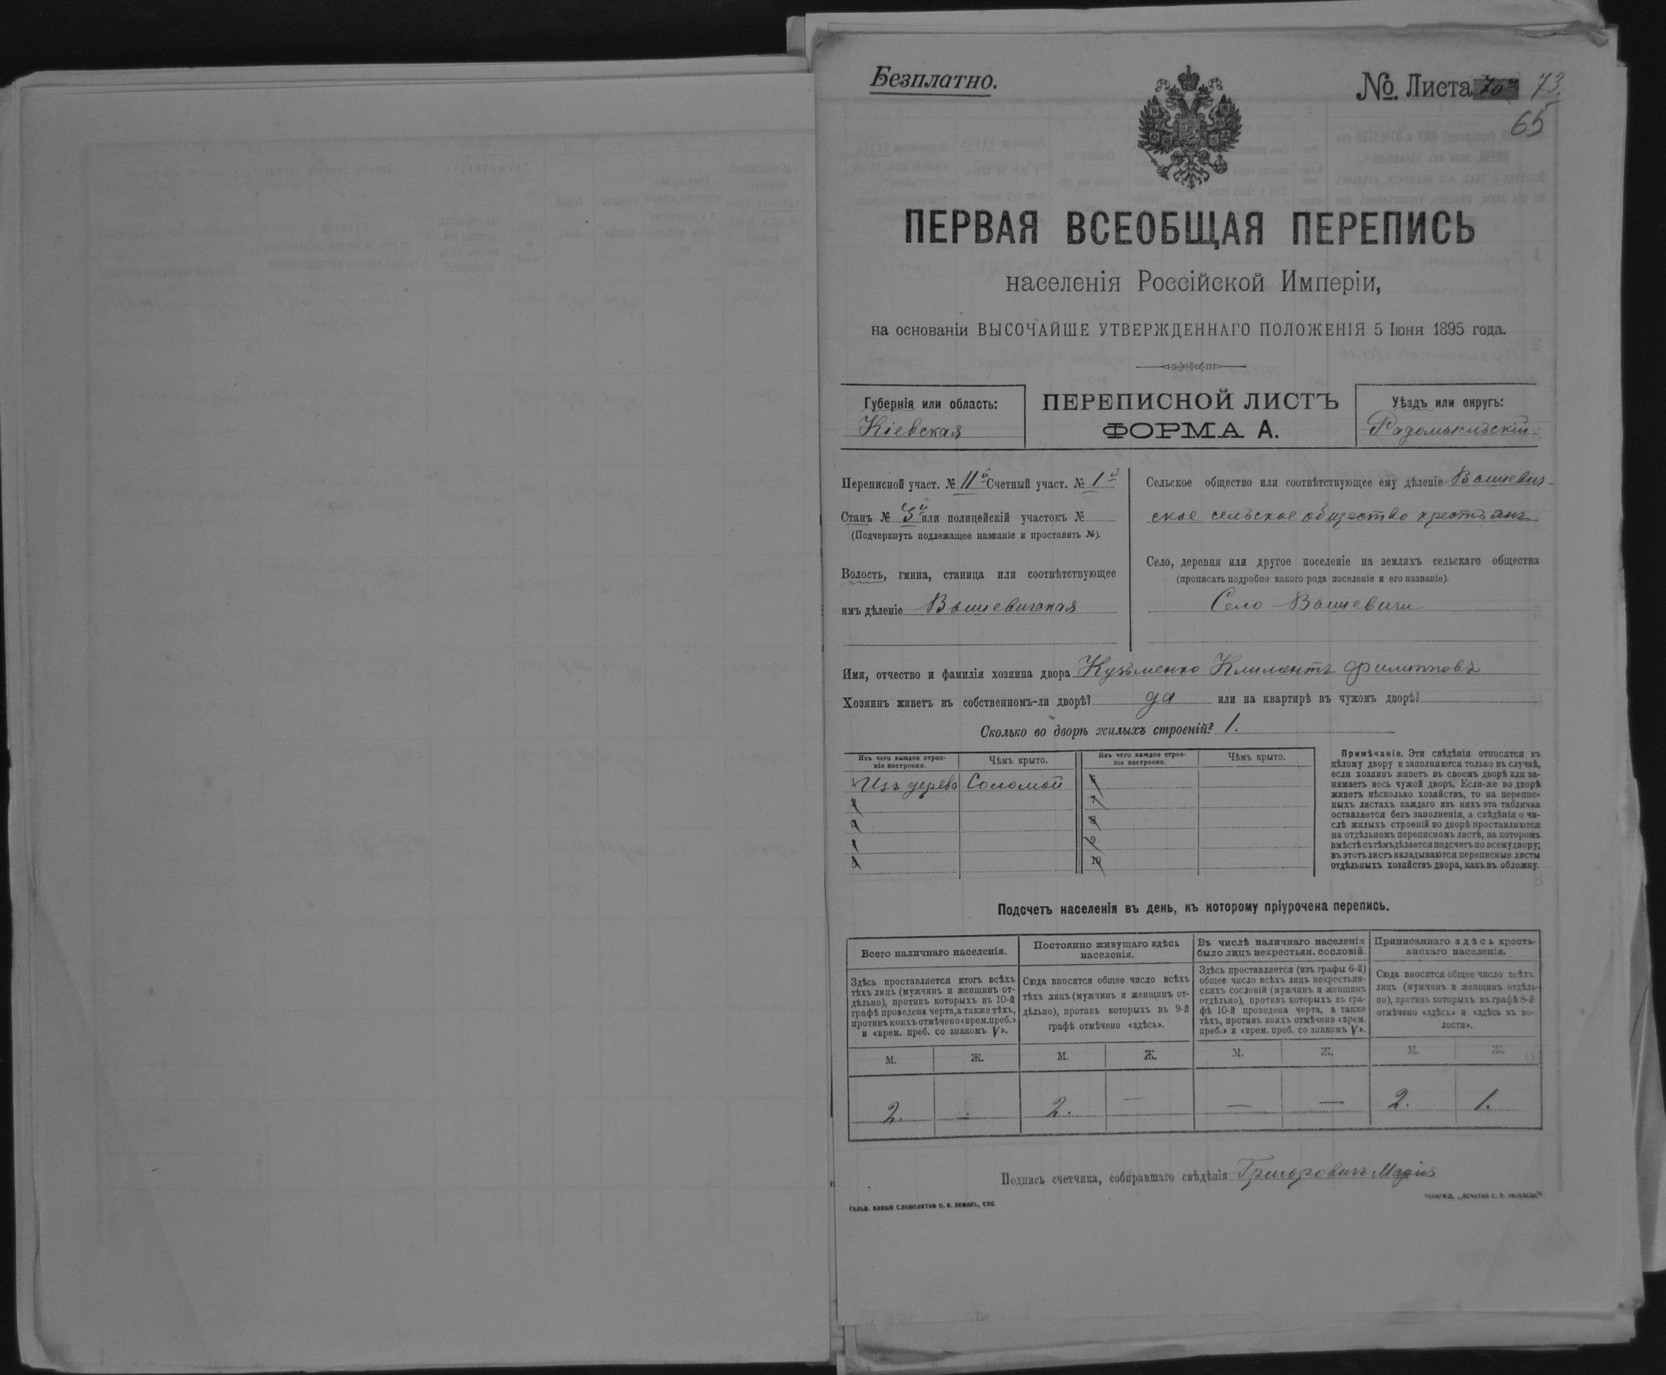 Безплатно.
№. Листа 73.
65
ПЕРВАЯ ВСЕОБЩАЯ ПЕРЕПИСЬ
населенія Россійской Имперіи,
на основаніи ВЫСОЧАЙШЕ УТВЕРЖДЕННАГО ПОЛОЖЕНІЯ 5 Іюня 1895 года.
Губернія или область:
Кіевская
ПЕРЕПИСНОЙ ЛИСТЪ
ФОРМА А.
Уѣздъ или округъ:
Радомысльскій
Переписной участ. № 11й Счетный участ. № 1й
Станъ № й или полицейскій участокъ №
(Подчеркнуть подлежащее названіе и проставить №).
Волость, гмина, станица или соотвѣтствующее
имъ дѣленіе Вышевичская
Сельское общество или соотвѣтствующее ему дѣленіе Вышевич-
ское сельское общество крестьянъ
Село, деревня или другое поселеніе на земляхъ сельскаго общества
(прописать подробно какого рода поселеніе и его названіе).
Село Вышевичи
Имя, отчество и фамилія хозяина двора Кузьменко Климентъ Филипповъ
Хозяинъ живетъ въ собственномъ-ли дворѣ? да или на квартирѣ въ чужомъ дворѣ?
Сколько во дворѣ жилыхъ строеній? 1.
Изъ чего каждое строе-
ніе построено.
Чѣмъ крыто.
Изъ чего каждое строе-
ніе построено.
Чѣмъ крыто.
1 Изъ дерева Соломой
2
3
4
5
6
7
8
9
10
Примѣчаніе. Эти свѣдѣнія относятся къ
цѣлому двору и заполняются только въ случаѣ,
если хозяинъ живетъ въ своемъ дворѣ или за-
нимаетъ весь чужой дворъ. Если-же во дворѣ
живетъ нѣсколько хозяйствъ, то на перепис-
ныхъ листахъ каждаго изъ нихъ эта табличка
оставляется безъ заполненія, а свѣдѣнія о чи-
слѣ жилыхъ строеній во дворѣ проставляются
на отдѣльномъ переписномъ листѣ, на которомъ
вмѣстѣ съ тѣмъ дѣлается подсчетъ по всему двору;
въ этотъ листъ вкладываются переписные листы
отдѣльныхъ хозяйствъ двора, какъ въ обложку.
Подсчетъ населенія въ день, къ которому пріурочена перепись.
Всего наличнаго населенія.
Здѣсь проставляется итогъ всѣхъ
тѣхъ лицъ (мужчинъ и женщинъ от-
дѣльно), противъ которыхъ въ 10-й
графѣ проведена черта, а также тѣхъ,
противъ коихъ отмѣчено «врем. преб.»
и «врем. преб. со знакомъ V».
Постоянно живущаго здѣсь
населенія.
Сюда вносится общее число всѣхъ
тѣхъ лицъ (мужчинъ и женщинъ от-
дѣльно), противъ которыхъ въ 9-й
графѣ отмѣчено «здѣсь».
Въ числѣ наличнаго населенія
было лицъ некрестьян. сословій.
Здѣсь проставляется (изъ графы 6-й)
общее число всѣхъ лицъ некрестьян-
скихъ сословій (мужчинъ и женщинъ
отдѣльно), противъ которыхъ въ гра-
фѣ 10-й проведена черта, а также
тѣхъ, противъ коихъ отмѣчено «врем.
преб.» и «врем. преб. со знакомъ V».
Приписаннаго здѣсь кресть-
янскаго населенія.
Сюда вносится общее число всѣхъ
лицъ (мужчинъ и женщинъ отдѣль-
но), противъ которыхъ въ графѣ 8-й
отмѣчено «здѣсь» и «здѣсь къ во-
лости».
М. Ж. М. Ж. М. Ж. М. Ж.
2. — 2. — — — 2. 1.
Подпись счетчика, собиравшаго свѣдѣнія Григоровичъ
ГАЛЬВ. КЛИШЕ СЛОВОЛИТНИ О. И. ЛЕМАНЪ, СПБ.